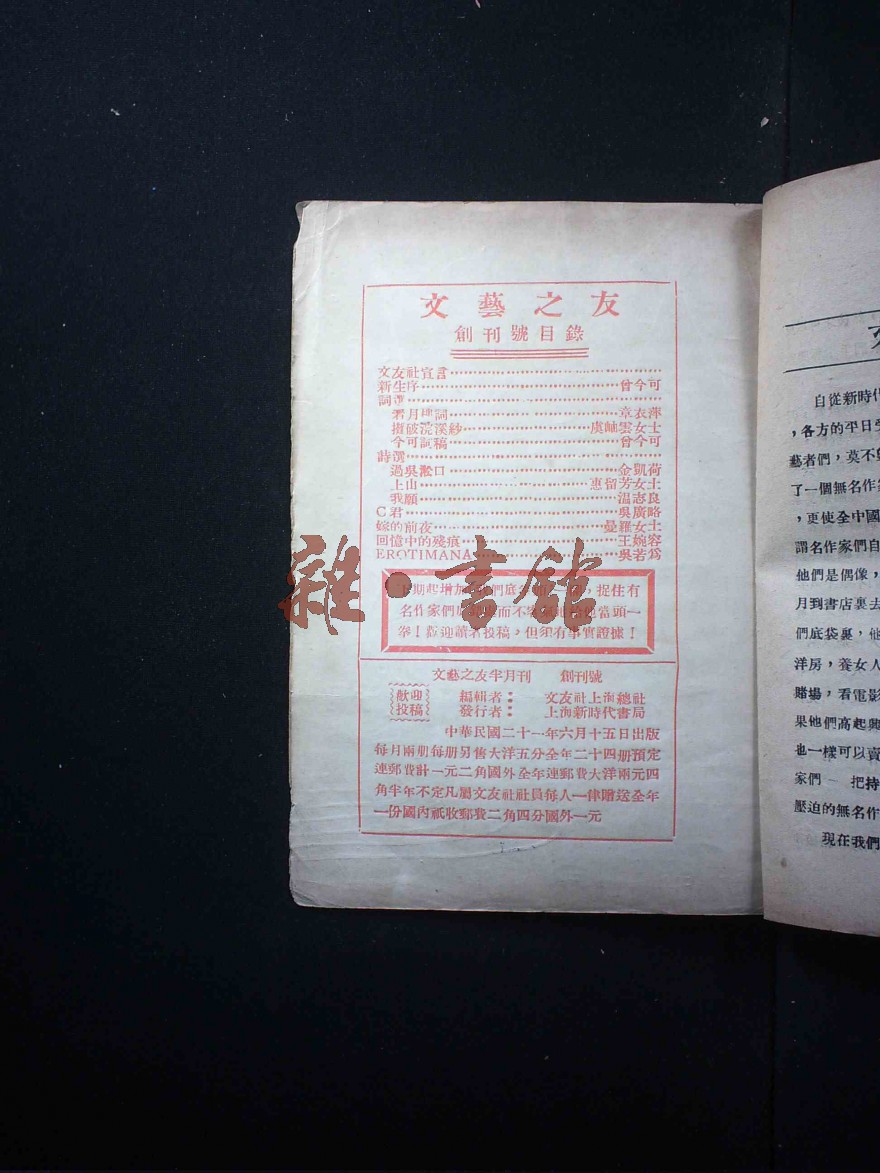 文藝之友
創刊號目錄
文友社宣言
新生序 曾今可
詞選
看月樓詞 章衣萍
攤破浣溪紗 虞岫雲女士
今可詞稿 曾今可
詩選
過吳淞口 金凱荷
上山 惠留芳女士
我願 温志良
C君 吳廣略
嫁的前夜 曼羅女士
回憶中的殘痕 王婉容
EROTIMANA 吳若爲
期起增加 們底 捉住有
名作家們 而不客氣地給他當頭一
棒！歡迎讀者投稿，但須有事實證據！
文藝之友半月刊 創刊號
歡迎投稿
編輯者： 文友社上海總社
發行者： 上海新時代書局
中華民國二十一年六月十五日出版
每月兩册每册另售大洋五分全年二十四册預定
連郵費計一元二角國外全年連郵費大洋兩元四
角半年不定凡屬文友社社員每人一律贈送全年
一份國內祇收郵費二角四分國外一元
雜·書館
自從新時代
，各方的平日
藝者們，莫不
了一個無名作
，更使全中國
謂名作家們自
他們是偶像，
月到書店裏去
們底袋裏，他
洋房，養女人
賭場，看電影
果他們高起興
也一樣可以賣
家們— 把持
壓迫的無名作
現在我們